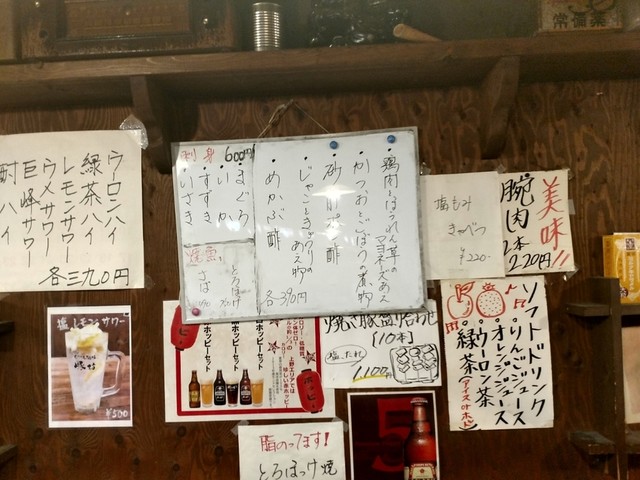 ウーロンハイ
緑茶ハイ
レモンサワー
ウメサワー
巨峰サワー
酎ハイ
各三九〇円
刺身 600円
・まぐろ
・いか
・すずき
・いさき
とろほっけ
さば
・鶏肉とほうれん草の
マヨネーズあえ
・かつおとごぼうの煮物
・砂肝ポン酢
・じゃことキュウリの
あえ物
・めかぶ酢
各390円
塩もみ
きゃべつ
¥220-
美味!!
腕肉
2本
220円
塩レモンサワー
¥500
ホッピーセット
ホッピーセット
ホッピーセット
上野エリアでは
珍しい赤ホッピー
[10本]
塩、たれ
1100円
ソフトドリンク
りんごジュース
オレンジジュース
ウーロン茶
緑茶(アイスorホット)
脂のってます!
とろほっけ焼
常備薬